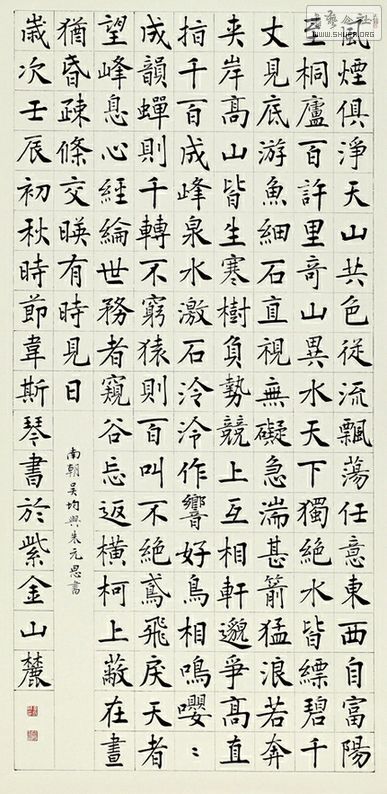 風煙俱淨天山共色從流飄蕩任意東西自富陽
至桐廬百許里竒山異水天下獨絕水皆縹碧千
丈見底游魚細石直視無礙急湍甚箭猛浪若奔
夹岸高山皆生寒樹負勢競上互相軒邈爭高直
指千百成峰泉水激石泠泠作響好鳥相鳴嚶〻
成韻蟬則千轉不窮猿則百叫不絕鳶飛戾天者
望峰息心經綸世務者窺谷忘返橫柯上蔽在晝
猶昏疎條交暎有時見日
南朝吳均與朱元思書
歲次壬辰初秋時節韋斯琴書於紫金山麓
WWW.SHUFA.ORG